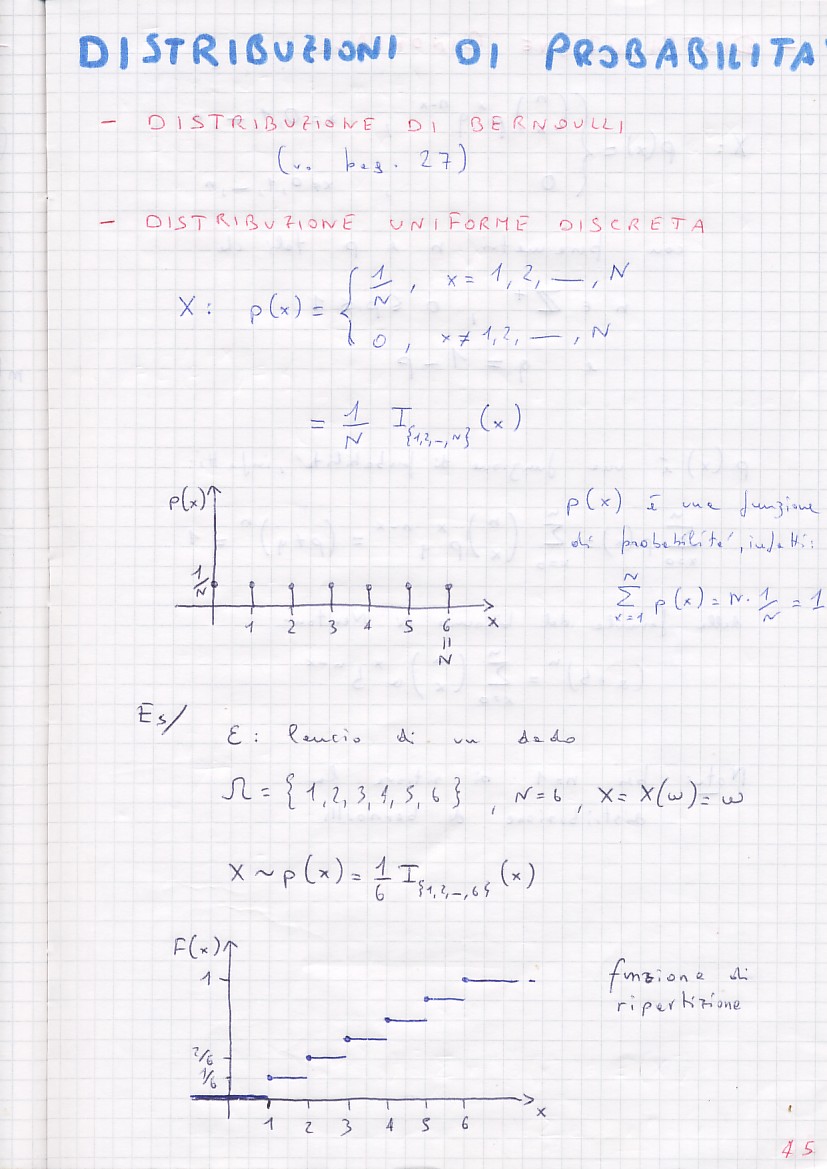 DISTRIBUZIONI DI PROBABILITA'
- DISTRIBUZIONE DI BERNOULLI
(v. pag. 27)
- DISTRIBUZIONE UNIFORME DISCRETA
X: p(x) = { 1/N , x = 1, 2, —, N
0 , x ≠ 1, 2, —, N
= 1/N I{1,2,-,N} (x)
p(x)
1/N
1 2 3 4 5 6 x
=
N
p(x) è una funzione
di probabilità, infatti:
N∑x=1 p(x) = N · 1/N = 1
Es/
ε: lancio di un dado
Ω = { 1, 2, 3, 4, 5, 6 } , N = 6 , X = X(ω) = ω
X ~ p(x) = 1/6 I{1,2,-,6} (x)
F(x)
1
2/6
1/6
1 2 3 4 5 6 x
funzione di
ripartizione
45